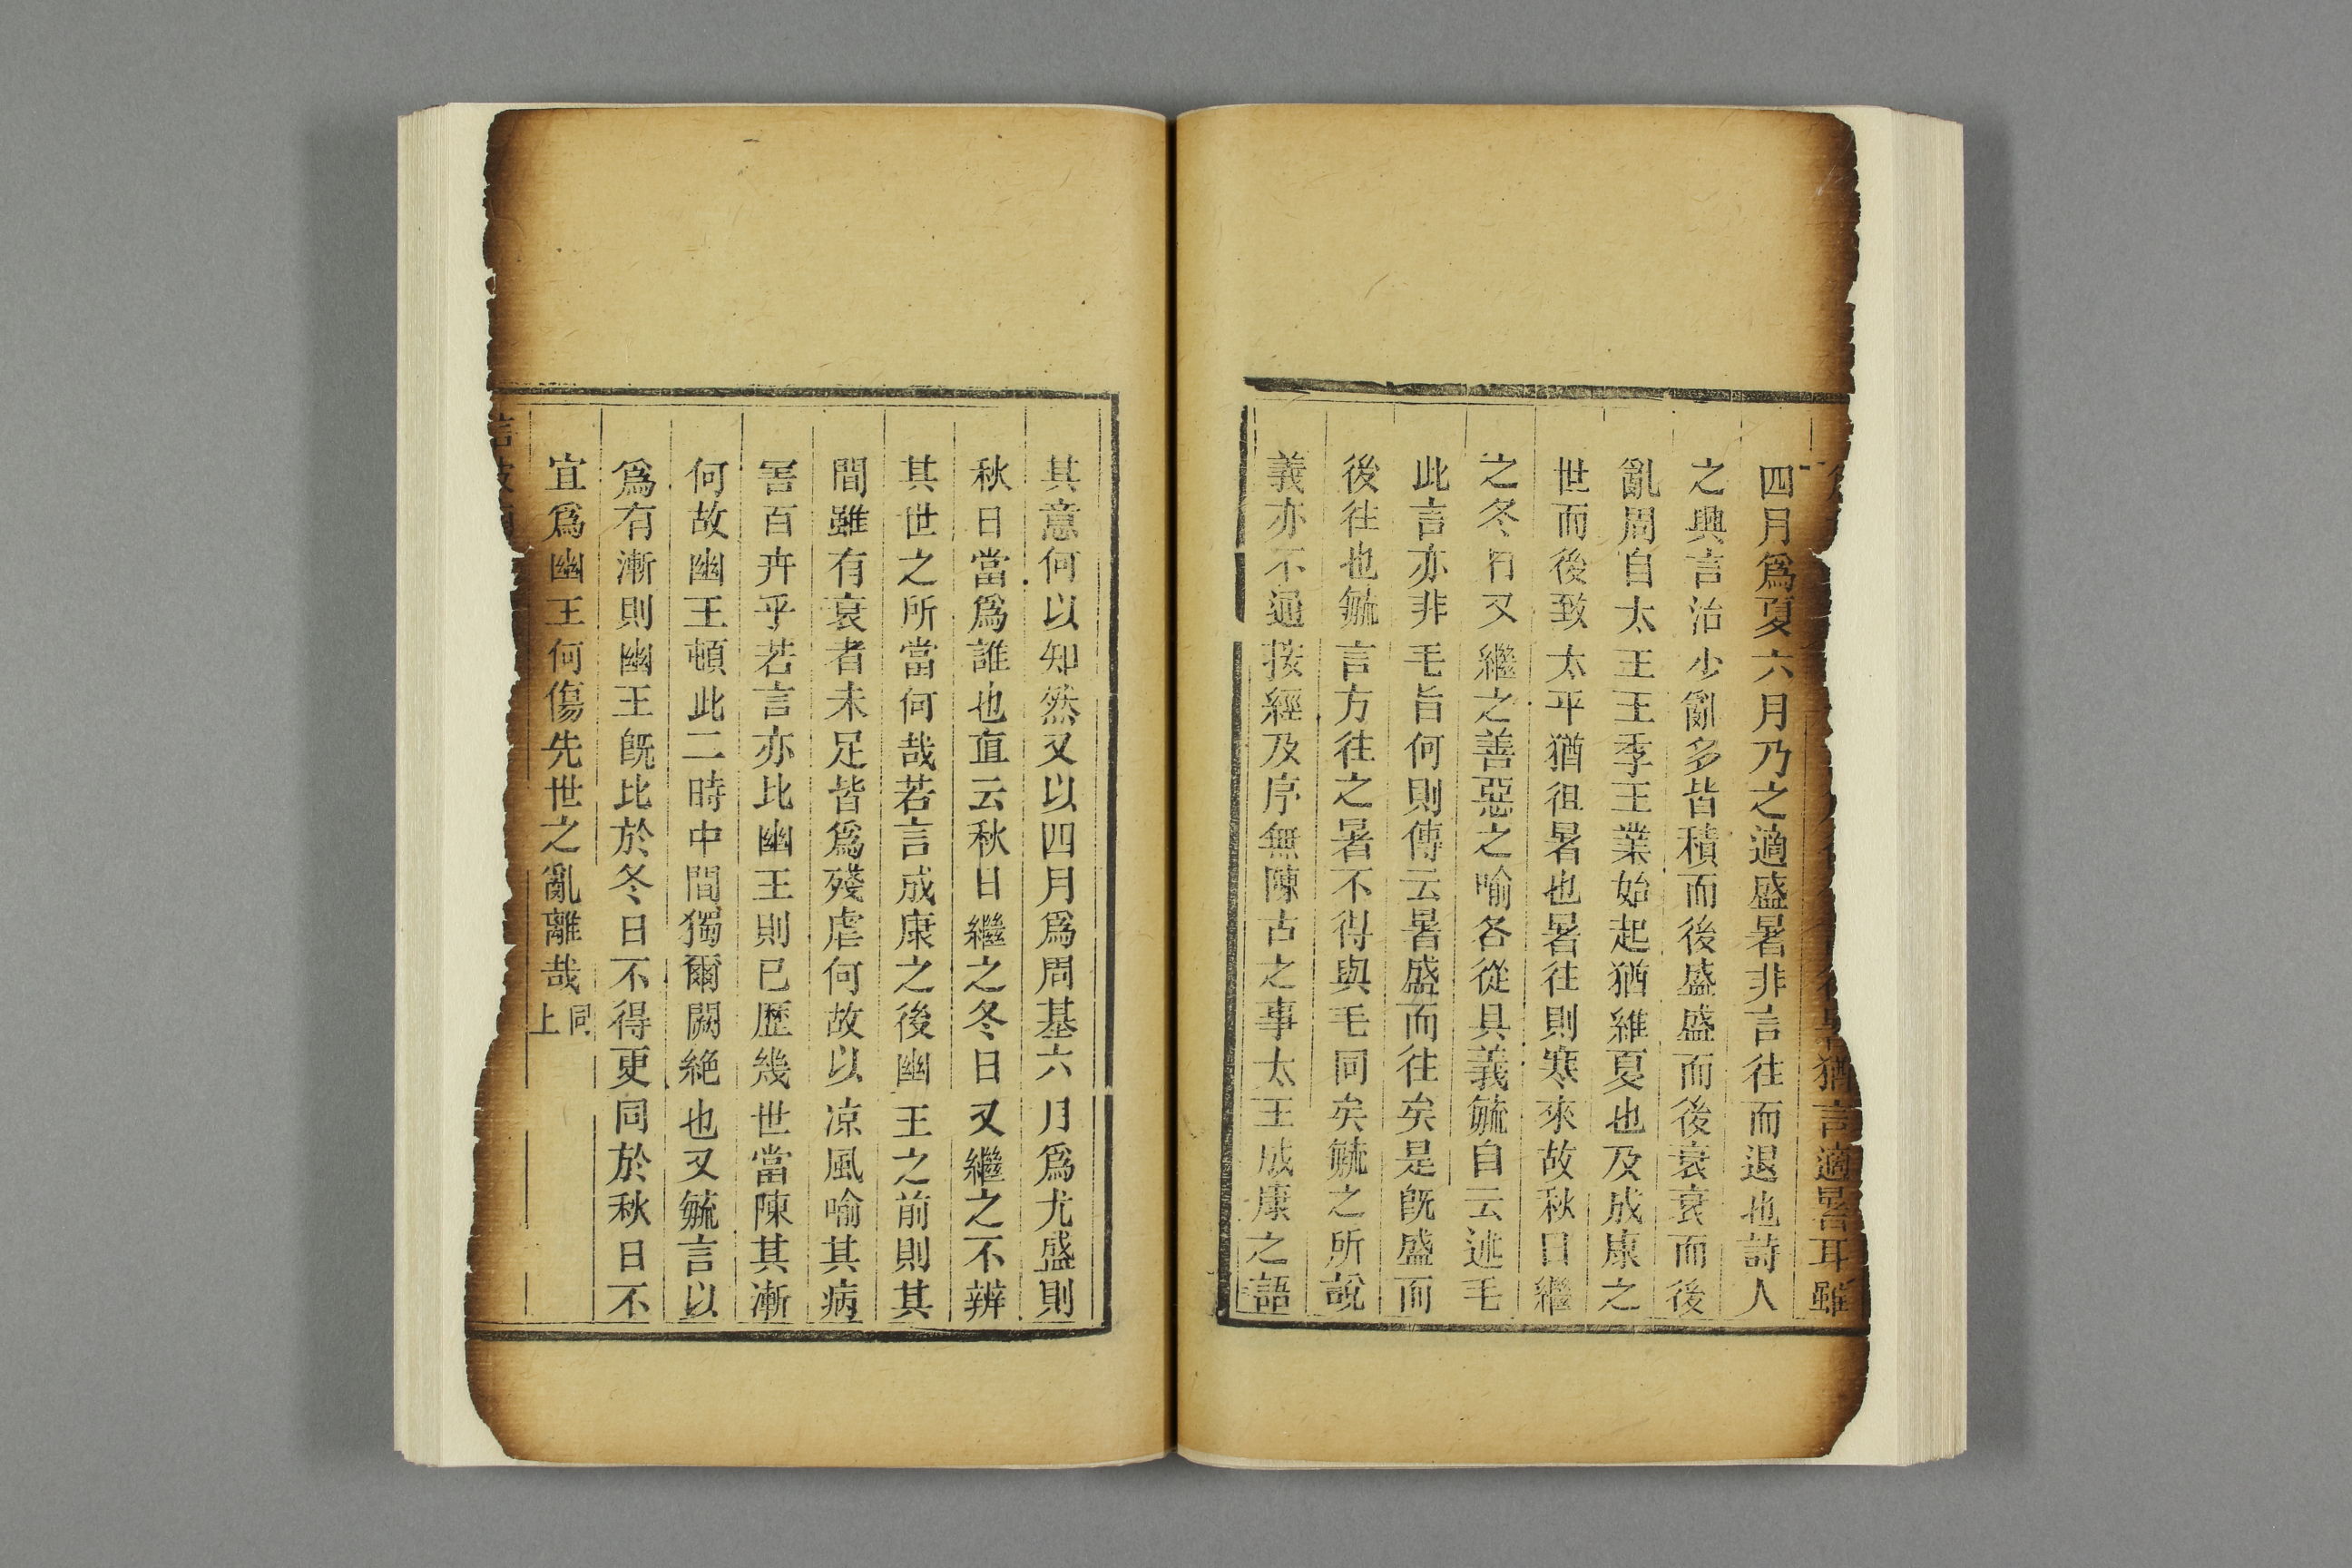 猶言適暑耳雖
四月爲夏六月乃之適盛暑非言往而退也詩人
之興言治少亂多皆積而後盛盛而後衰衰而後
亂周自太王王季王業始起猶維夏也及成康之
世而後致太平猶徂暑也暑往則寒來故秋日繼
之冬日又繼之善惡之喻各從其義毓自云述毛
此言亦非毛旨何則傳云暑盛而往矣是旣盛而
後往也毓言方往之暑不得與毛同矣毓之所說
義亦不通按經及序無陳古之事太王成康之語
其意何以知然又以四月爲周基六月爲尤盛則
秋日當爲誰也直云秋日繼之冬日又繼之不辨
其世之所當何哉若言成康之後幽王之前則其
間雖有衰者未足皆爲殘虐何故以凉風喻其病
害百卉乎若言亦比幽王則已歷幾世當陳其漸
何故幽王頓此二時中間獨爾闕絶也又毓言以
爲有漸則幽王旣比於冬日不得更同於秋日不
宜爲幽王何傷先世之亂離哉同上